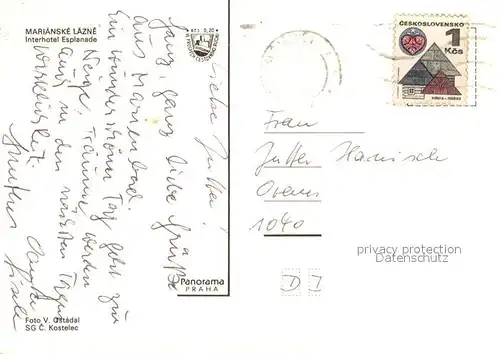 MARIÁNSKÉ LÁZNĚ
Interhotel Esplanade
Kčs 0,20
Liebe Jutta!
ganz, ganz liebe Grüße
aus Marienbad.
Ein wunderschöner Tag geht zu
Neige. Träume werden
auch in den nächsten Tagen
Wirklichkeit.
Panorama
PRAHA
Foto V. Ošťádal
SG Č. Kostelec
ČESKOSLOVENSKO
1
Kčs
Frau
Jutta
1040
D
privacy protection
Datenschutz